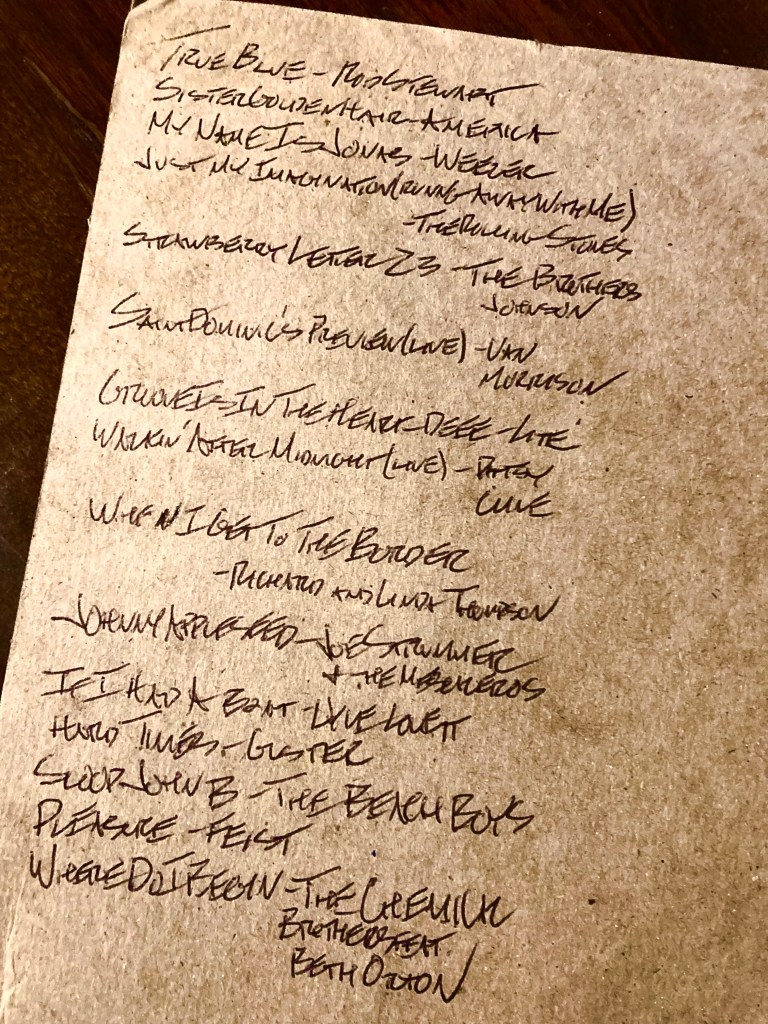 TRUE BLUE - ROD STEWART
SISTER GOLDEN HAIR - AMERICA
MY NAME IS JONAS - WEEZER
JUST MY IMAGINATION (RUNNING AWAY WITH ME)
- THE ROLLING STONES
STRAWBERRY LETTER 23 - THE BROTHERS
JOHNSON
SAINT DOMINIC'S PREVIEW (LIVE) - VAN
MORRISON
GROOVE IS IN THE HEART - DEEE-LITE
WALKIN' AFTER MIDNIGHT (LIVE) - PATSY
CLINE
WHEN I GET TO THE BORDER
- RICHARD AND LINDA THOMPSON
JOHNNY APPLESEED - JOE STRUMMER
+ THE MESCALEROS
IF I HAD A BOAT - LYLE LOVETT
HARD TIMES - GUSTER
SLOOP JOHN B - THE BEACH BOYS
PLEASURE - FEIST
WHERE DO I BEGIN - THE CHEMICAL
BROTHERS FEAT.
BETH ORTON